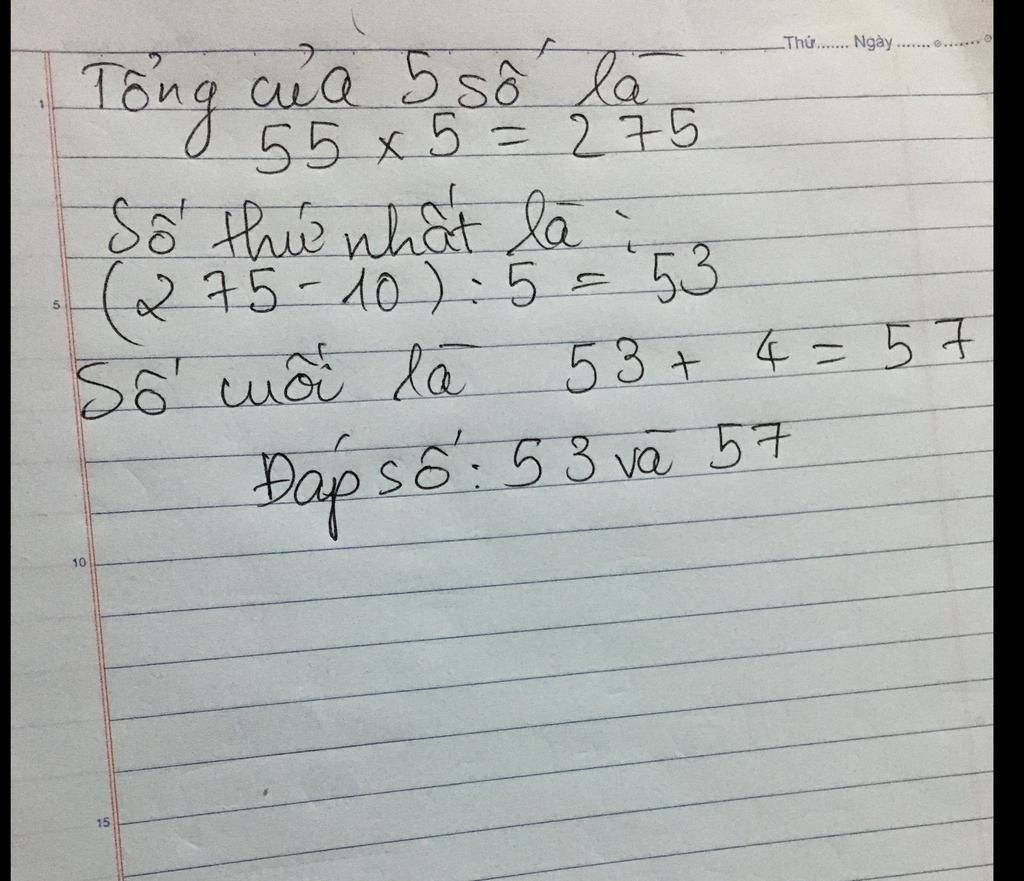 Thứ....... Ngày ....................
Tổng của 5 số là
1
55 x 5 = 275
Số thứ nhất là :
(275 - 10) : 5 = 53
5
Số cuối là 53 + 4 = 57
Đáp số: 53 và 57
10
15